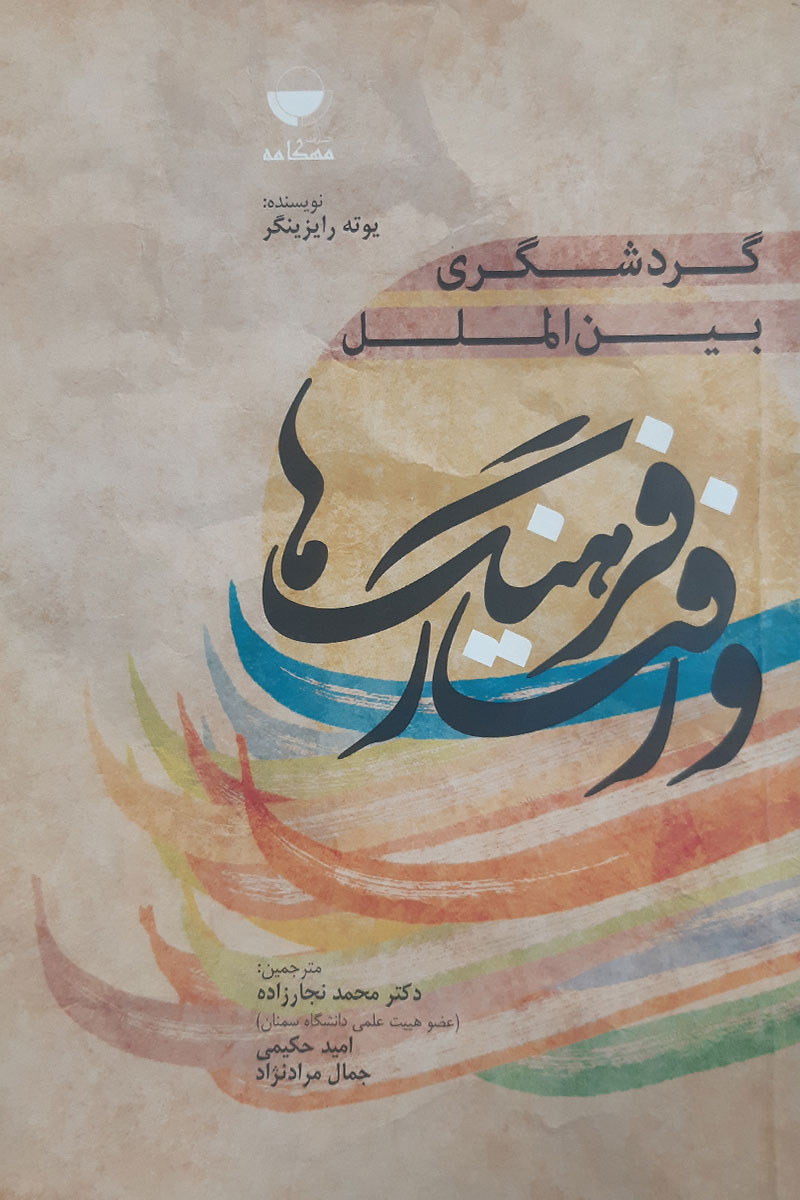 مهکامه
نویسنده:
یوته رایزینگر
گردشگری
بین‌الملل
و رفتار فرهنگ‌ها
مترجمین:
دکتر محمد نجارزاده
(عضو هییت علمی دانشگاه سمنان)
امید حکیمی
جمال مرادنژاد